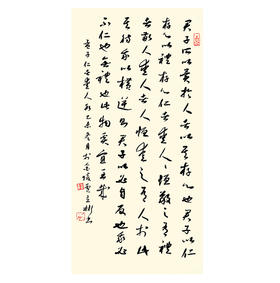 君子所以異於人者以其存心也君子以仁
存心以禮存心仁者愛人恆敬之有禮
者敬人愛人者人恆愛之有人於此
其待我以橫逆則君子以必自反也我必
不仁也必無禮也此物奚宜至哉
孟子仁者愛人 乙未冬月於金陵